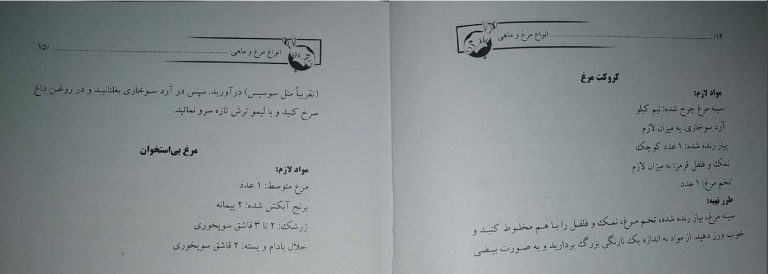 ۱۴/ انواع مرغ و ماهی
کروکت مرغ
مواد لازم:
سینه مرغ چرخ شده: نیم کیلو
آرد سوخاری: به میزان لازم
پیاز رنده شده: ۱ عدد کوچک
نمک و فلفل قرمز: به میزان لازم
تخم مرغ: ۱ عدد
طرز تهیه:
سینه مرغ، پیاز رنده شده، تخم مرغ، نمک و فلفل را با هم مخلوط کنید و
خوب ورز دهید. از مواد به اندازه یک نارنگی بزرگ بردارید و به صورت بیضی
انواع مرغ و ماهی /۱۵
(تقریباً مثل سوسیس) درآورید. سپس در آرد سوخاری بغلتانید و در روغن داغ
سرخ کنید و با لیمو ترش تازه سرو نمائید.
مرغ بی‌استخوان
مواد لازم:
مرغ متوسط: ۱ عدد
برنج آبکش شده: ۲ پیمانه
زرشک: ۲ تا ۳ قاشق سوپخوری
خلال بادام و پسته: ۲ قاشق سوپخوری